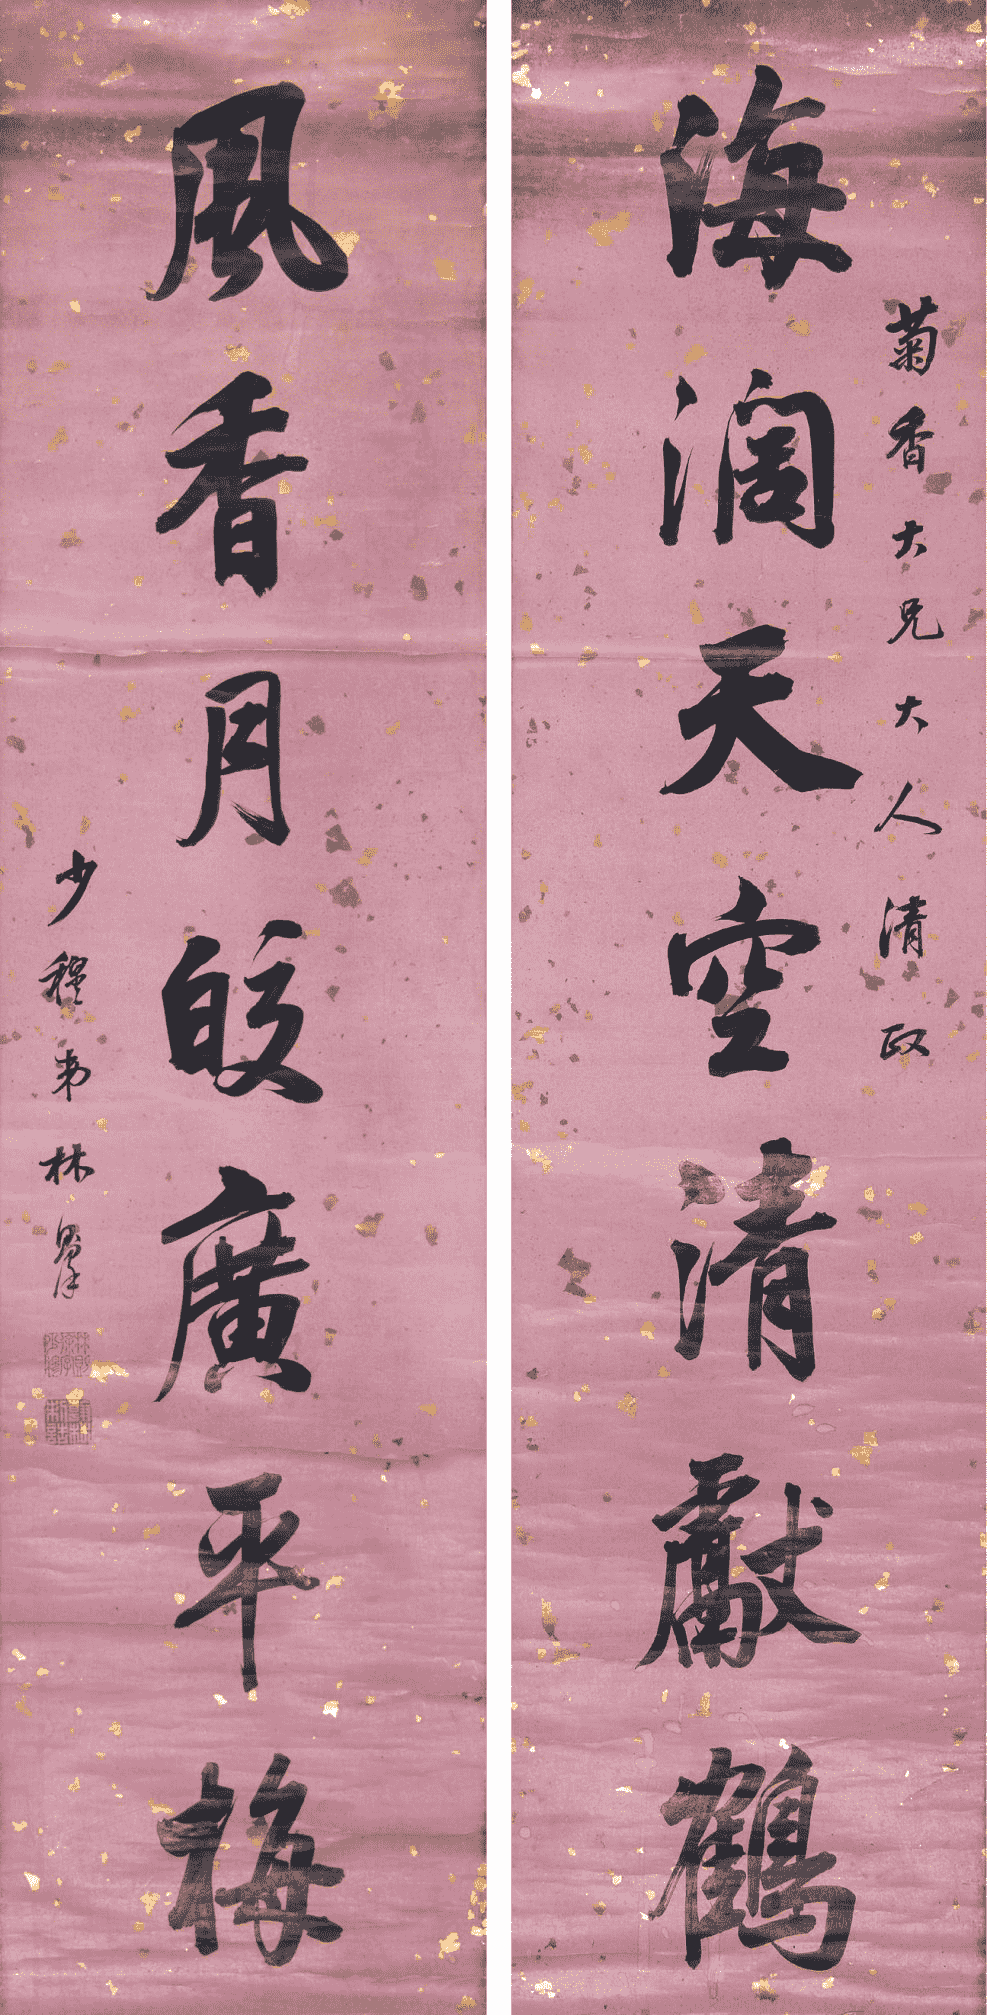 菊香大兄大人清政
海濶天空清獻鶴
風香月皎廣平梅
少穆弟林則徐